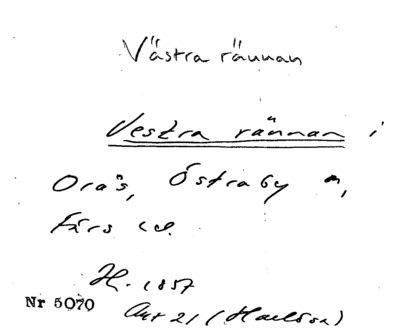 Västra rännan
Vestra rännan i
Orås, Östraby sn,
Färs hd.
H. 1857
Nr 5070
Akt 21 (Harlösa)